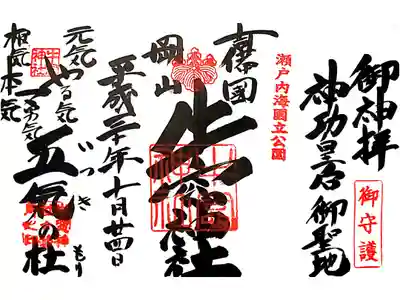 御神拝
神功皇后御聖地
御守護
瀬戸内海國立公園
吉備國
岡山
牛窓神社
平成二十年十月廿四日
元気やる気
根気本気勇気
五気の杜
いつき もり